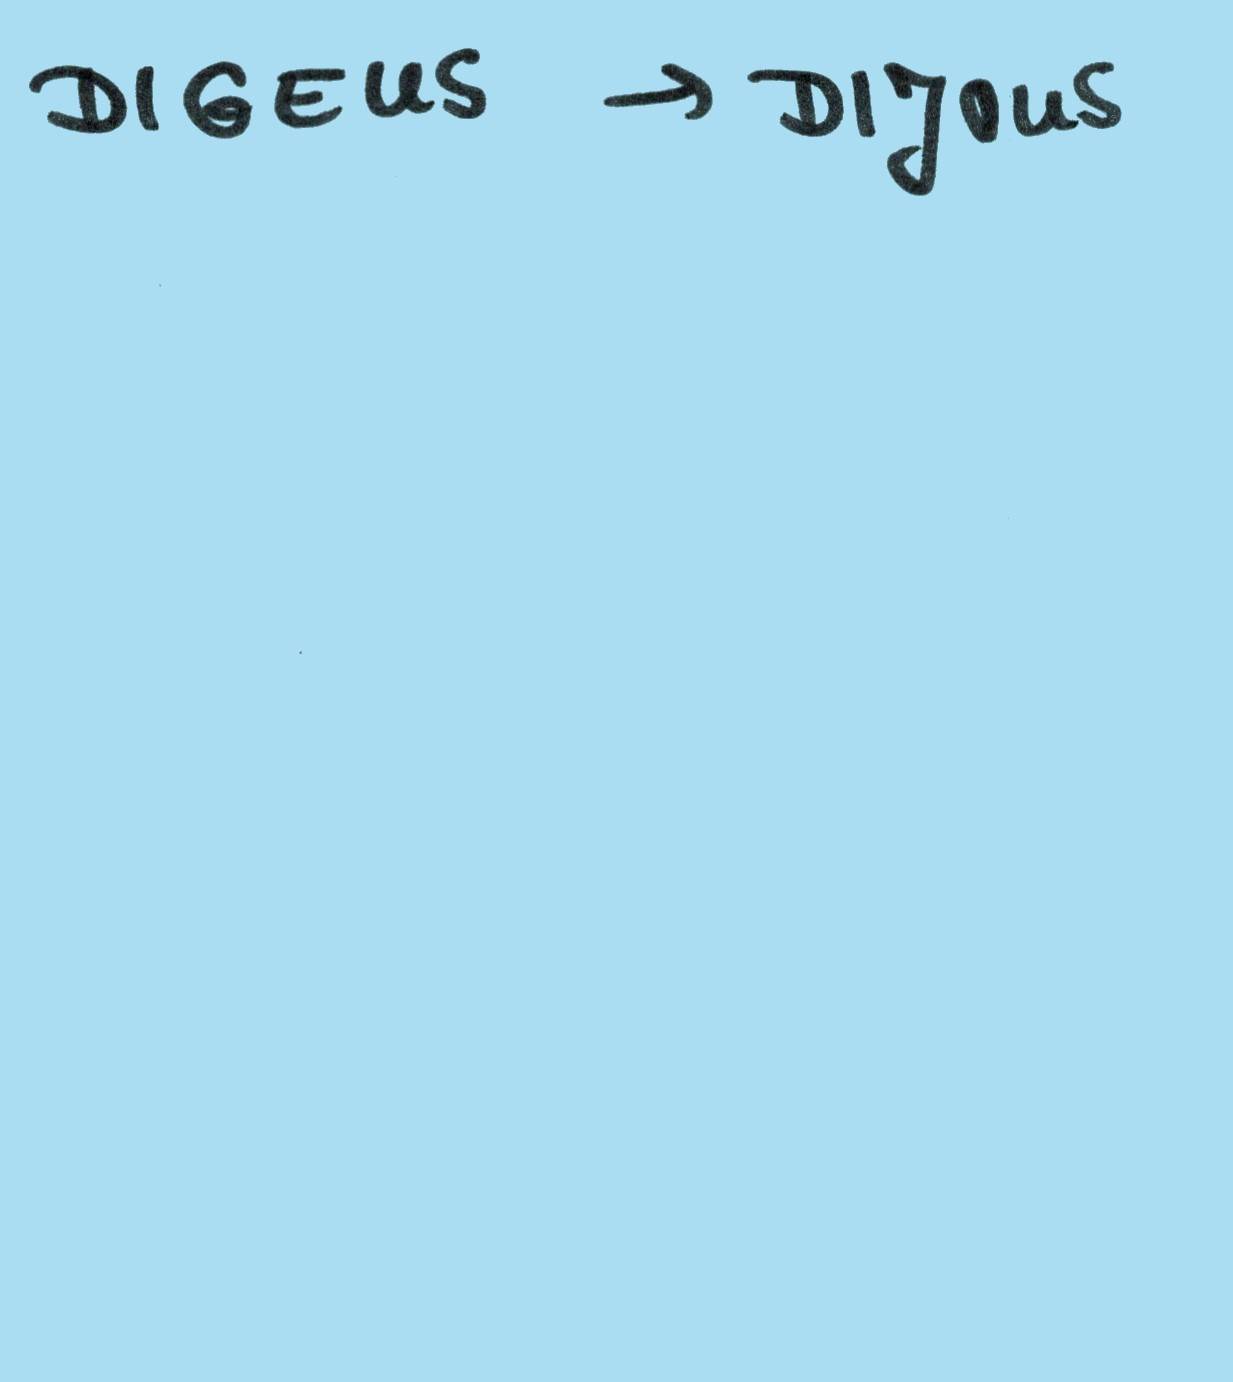 DIGEUS → DIJOUS